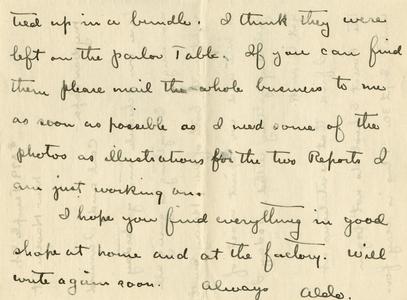 tied up in a bundle. I think they were
left on the parlor Table. If you can find
them please mail the whole business to me
as soon as possible as I need some of the
photos as illustrations for the two Reports I
am just working on.
I hope you find everything in good
shape at home and at the factory. Will
write again soon. Always Aldo.